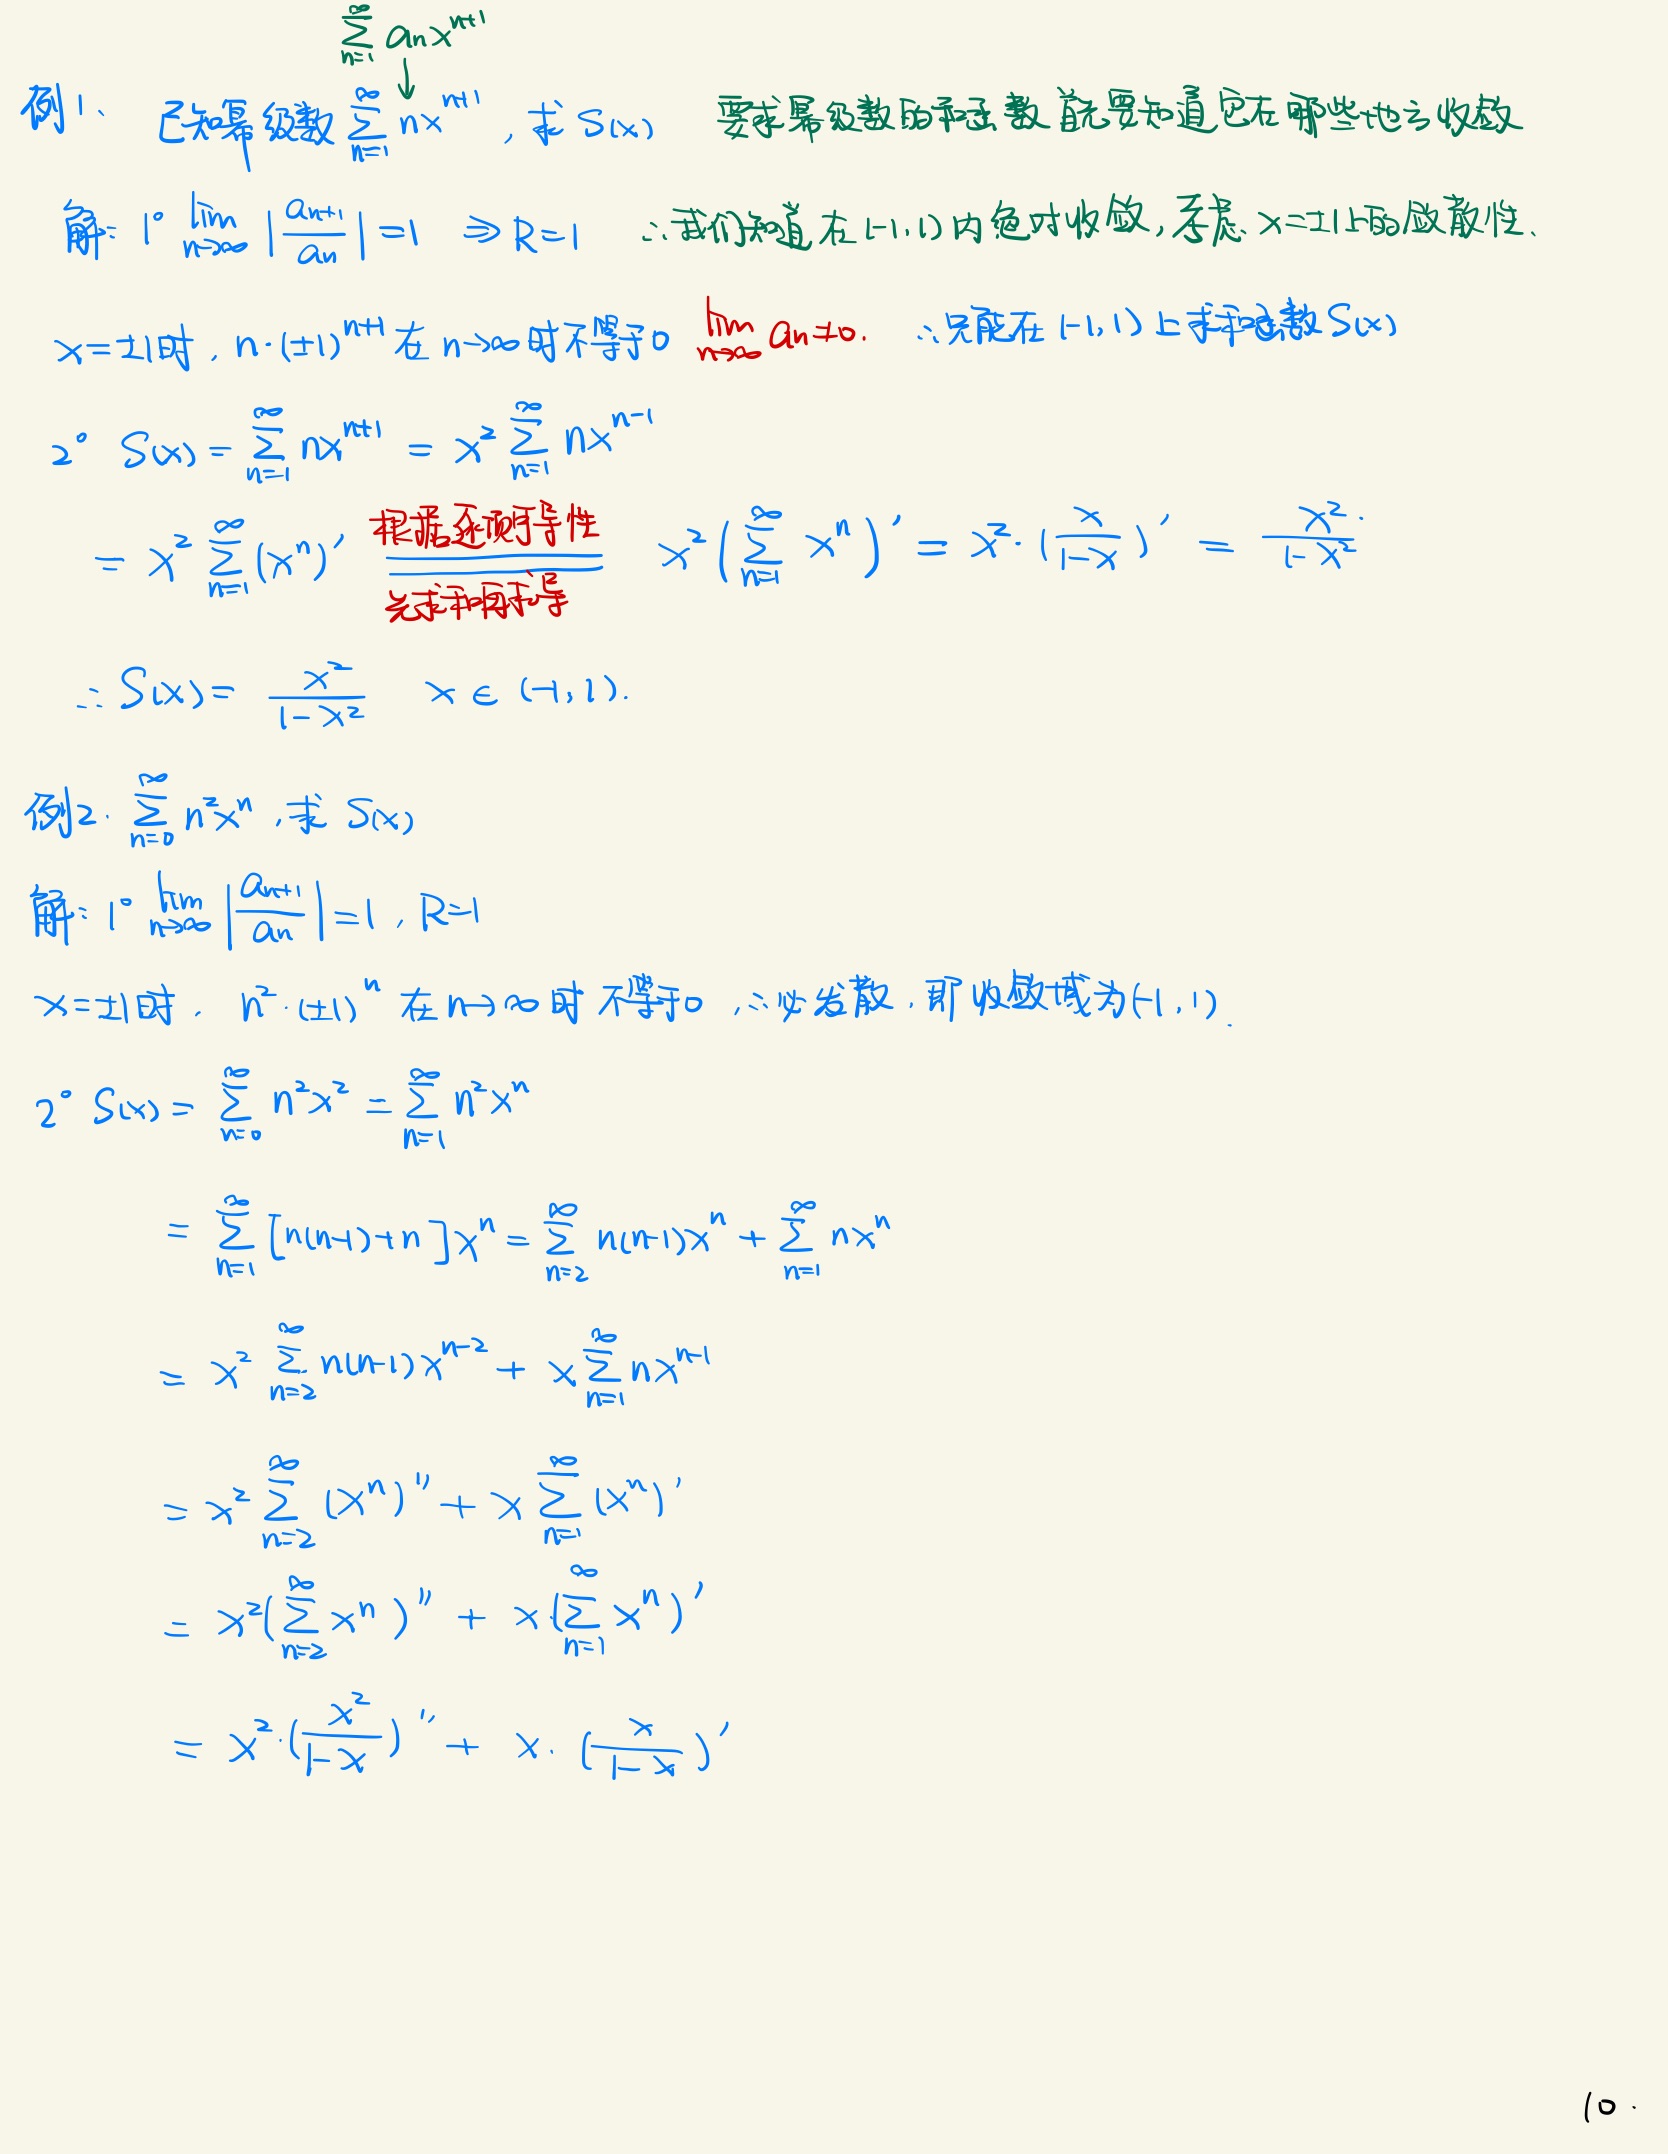 ∑_{n=1}^{∞} a_n x^{n+1}
↓
例1、 已知幂级数 ∑_{n=1}^{∞} nx^{n+1}, 求 S(x) 要求幂级数的和函数首先要知道它在哪些地方收敛
解: 1° lim_{n→∞} |a_{n+1}/a_n| = 1 ⇒ R=1 ∴我们知道在(-1,1)内绝对收敛, 考虑 x=±1上的敛散性.
x=±1时, n·(±1)^{n+1} 在 n→∞ 时不等于0 lim_{n→∞} a_n≠0. ∴只能在(-1,1)上求和函数S(x)
2° S(x) = ∑_{n=1}^{∞} nx^{n+1} = x² ∑_{n=1}^{∞} nx^{n-1}
= x² ∑_{n=1}^{∞} (x^n)′ 根据逐项可导性 先求和再求导 x² (∑_{n=1}^{∞} x^n)′ = x²·(x/(1-x))′ = x²/(1-x²).
∴ S(x) = x²/(1-x²) x∈(-1,1).
例2. ∑_{n=0}^{∞} n²x^n, 求 S(x)
解: 1° lim_{n→∞} |a_{n+1}/a_n| = 1, R=1
x=±1时, n²·(±1)^n 在 n→∞ 时不等于0, ∴必发散, 即收敛域为(-1,1).
2° S(x) = ∑_{n=0}^{∞} n²x² = ∑_{n=1}^{∞} n²x^n
= ∑_{n=1}^{∞} [n(n-1)+n]x^n = ∑_{n=2}^{∞} n(n-1)x^n + ∑_{n=1}^{∞} nx^n
= x² ∑_{n=2}^{∞} n(n-1)x^{n-2} + x ∑_{n=1}^{∞} nx^{n-1}
= x² ∑_{n=2}^{∞} (x^n)″ + x ∑_{n=1}^{∞} (x^n)′
= x² (∑_{n=2}^{∞} x^n)″ + x·(∑_{n=1}^{∞} x^n)′
= x²·(x²/(1-x))″ + x·(x/(1-x))′
10.